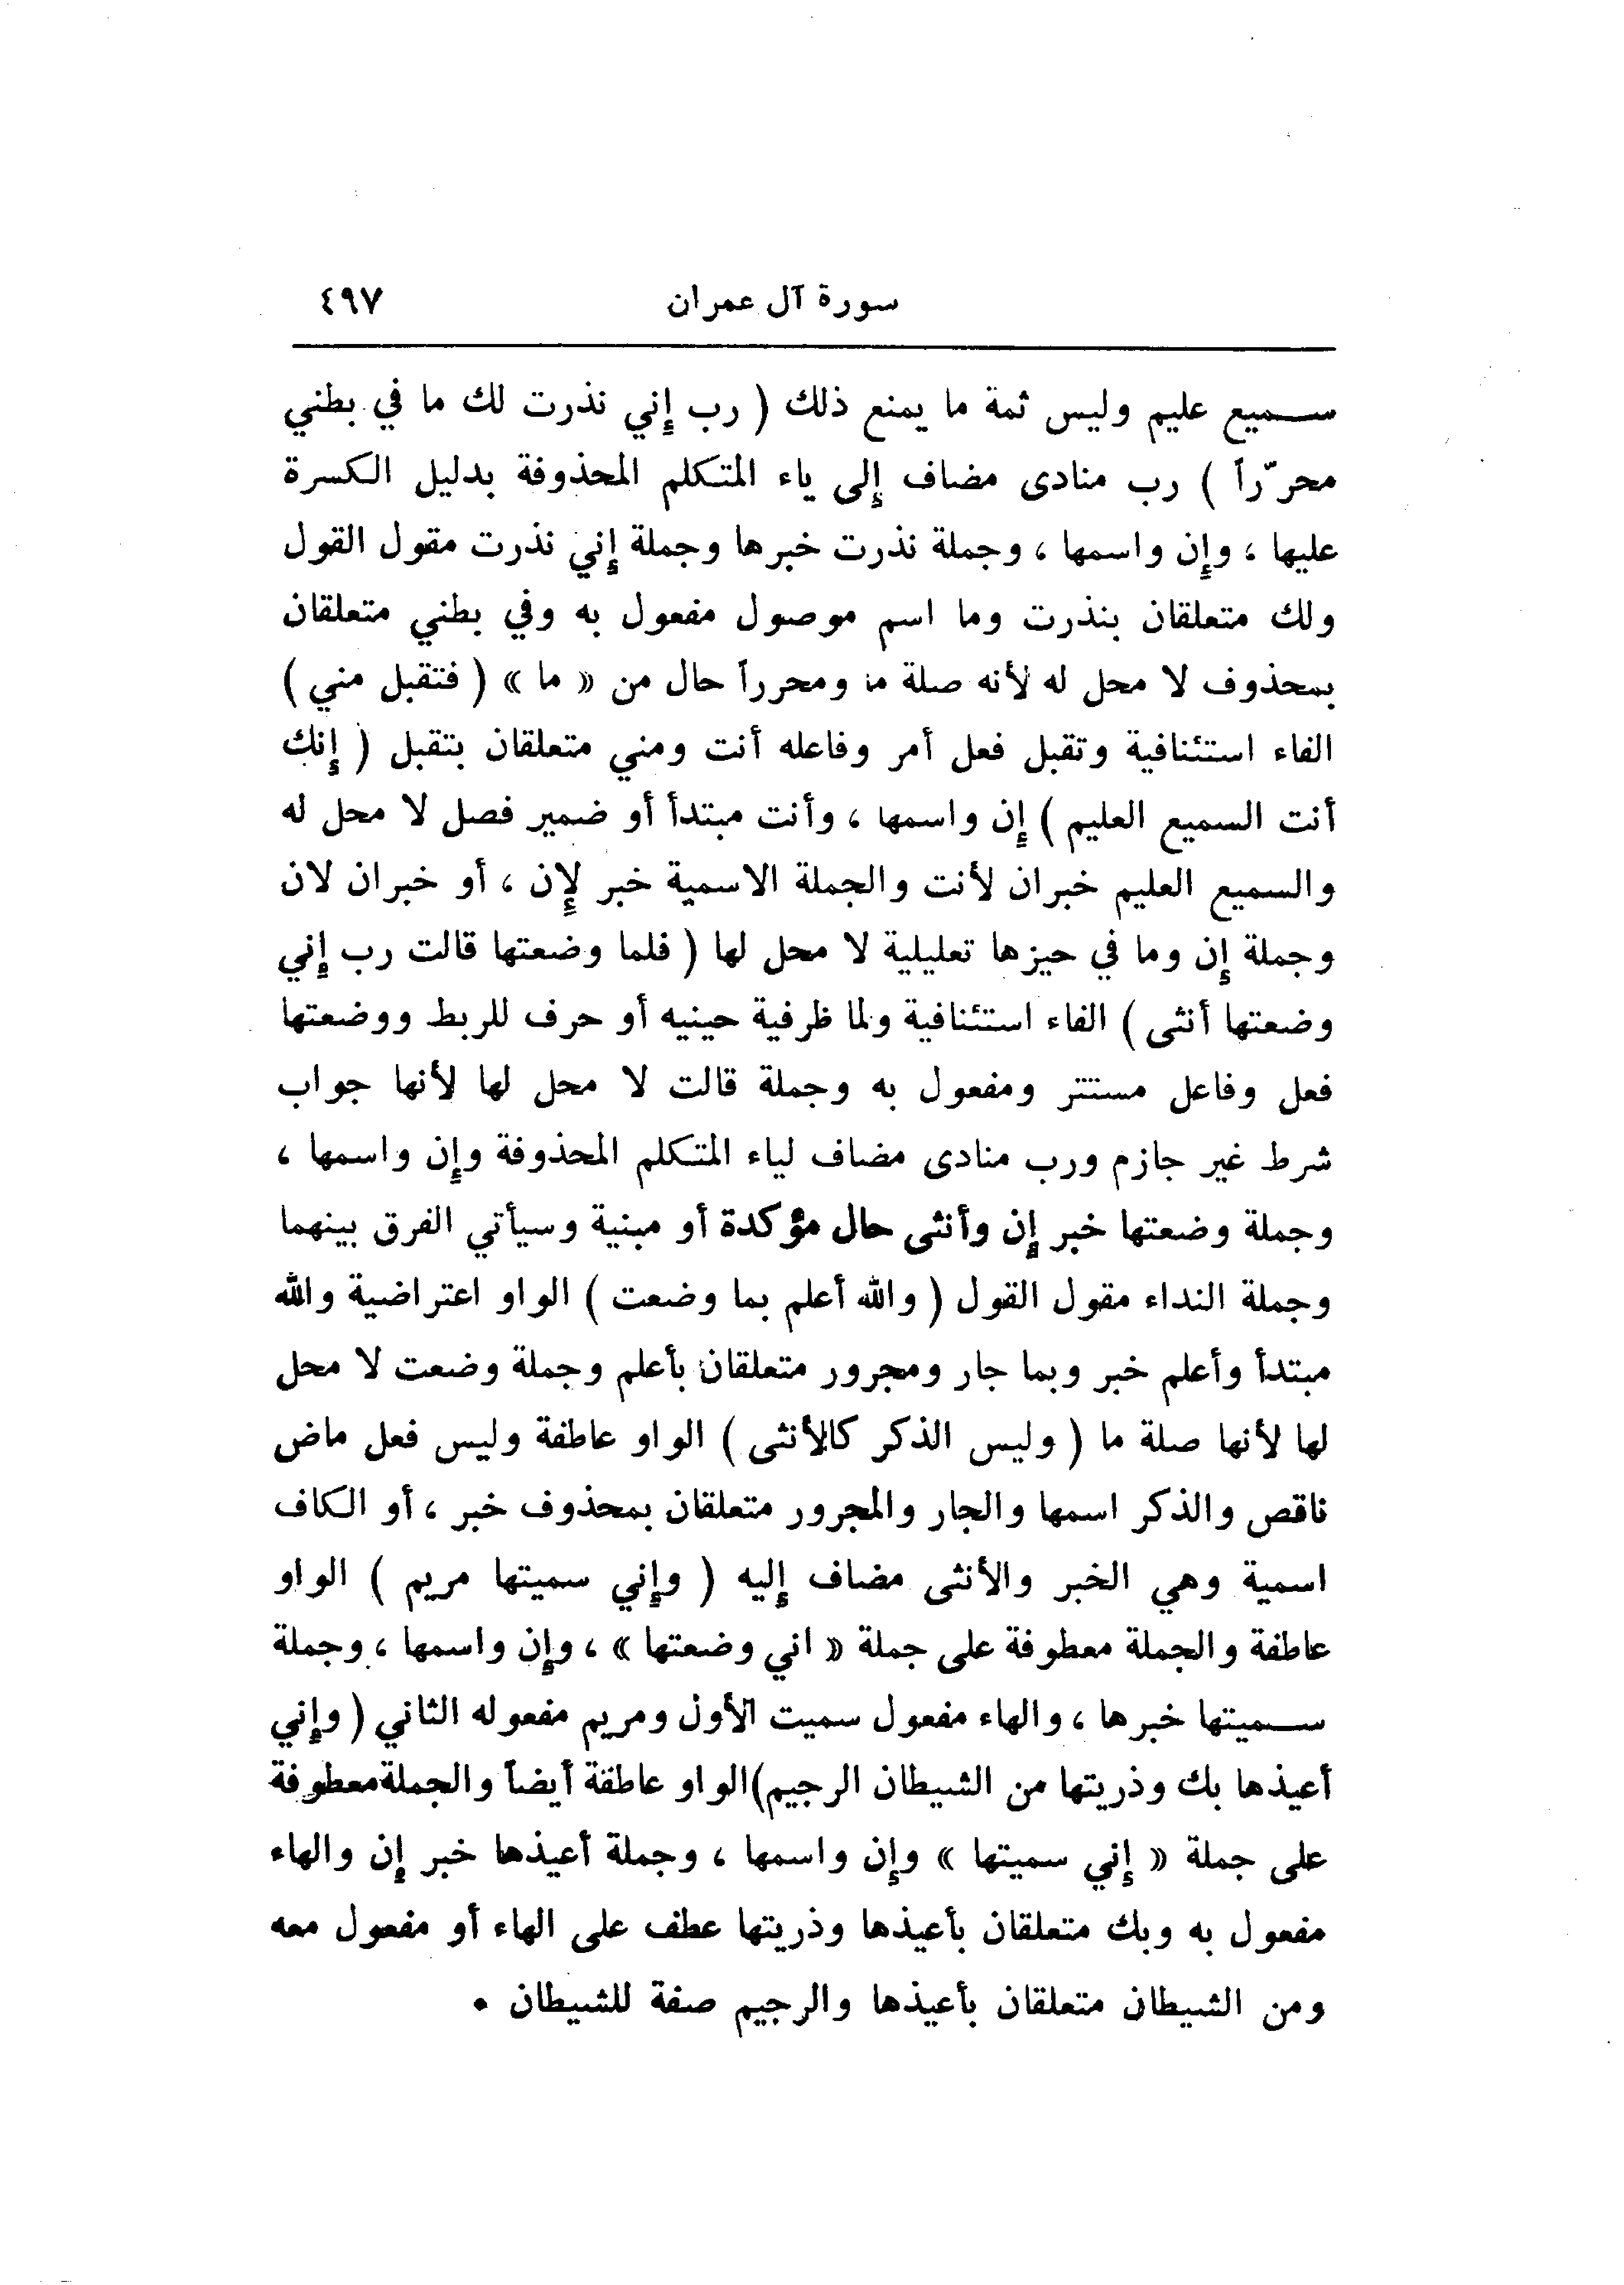 سورة آل عمران ٤٩٧
سميع عليم وليس ثمة ما يمنع ذلك ( رب إني نذرت لك ما في بطني
محرّراً ) رب منادى مضاف إلى ياء المتكلم المحذوفة بدليل الكسرة
عليها ، وإن واسمها ، وجملة نذرت خبرها وجملة إني نذرت مقول القول
ولك متعلقان بنذرت وما اسم موصول مفعول به وفي بطني متعلقان
بمحذوف لا محل له لأنه صلة ما ومحرراً حال من « ما » ( فتقبل مني )
الفاء استئنافية وتقبل فعل أمر وفاعله أنت ومني متعلقان بتقبل ( إنك
أنت السميع العليم ) إن واسمها ، وأنت مبتدأ أو ضمير فصل لا محل له
والسميع العليم خبران لأنت والجملة الاسمية خبر لإن ، أو خبران لان
وجملة إن وما في حيزها تعليلية لا محل لها ( فلما وضعتها قالت رب إني
وضعتها أنثى ) الفاء استئنافية ولما ظرفية حينيه أو حرف للربط ووضعتها
فعل وفاعل مستتر ومفعول به وجملة قالت لا محل لها لأنها جواب
شرط غير جازم ورب منادى مضاف لياء المتكلم المحذوفة وإن واسمها ،
وجملة وضعتها خبر إن وأنثى حال مؤكدة أو مبنية وسيأتي الفرق بينهما
وجملة النداء مقول القول ( والله أعلم بما وضعت ) الواو اعتراضية والله
مبتدأ وأعلم خبر وبما جار ومجرور متعلقان بأعلم وجملة وضعت لا محل
لها لأنها صلة ما ( وليس الذكر كالأنثى ) الواو عاطفة وليس فعل ماض
ناقص والذكر اسمها والجار والمجرور متعلقان بمحذوف خبر ، أو الكاف
اسمية وهي الخبر والأنثى مضاف إليه ( وإني سميتها مريم ) الواو
عاطفة والجملة معطوفة على جملة « اني وضعتها » ، وإن واسمها ، وجملة
سميتها خبرها ، والهاء مفعول سميت الأول ومريم مفعوله الثاني ( وإني
أعيذها بك وذريتها من الشيطان الرجيم ) الواو عاطفة أيضاً والجملة معطوفة
على جملة « إني سميتها » وإن واسمها ، وجملة أعيذها خبر إن والهاء
مفعول به وبك متعلقان بأعيذها وذريتها عطف على الهاء أو مفعول معه
ومن الشيطان متعلقان بأعيذها والرجيم صفة للشيطان .